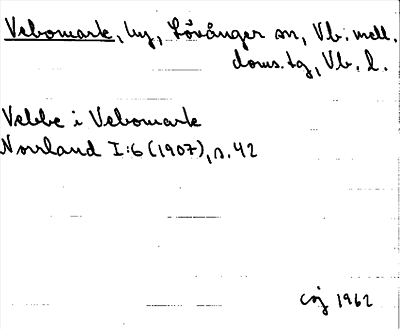 Vebomark, by, Lövånger sn, Vb. mell.
doms.tg, Vb. l.
Vebbe i Vebomark
Norrland I:6 (1907), s. 42
CEJ 1962